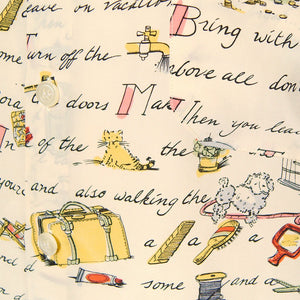 eave on vacation
Bring with
Turn off the
bove all don
doors Ma
Then you lea
of the the
and also walking the
a a a
and
some and a